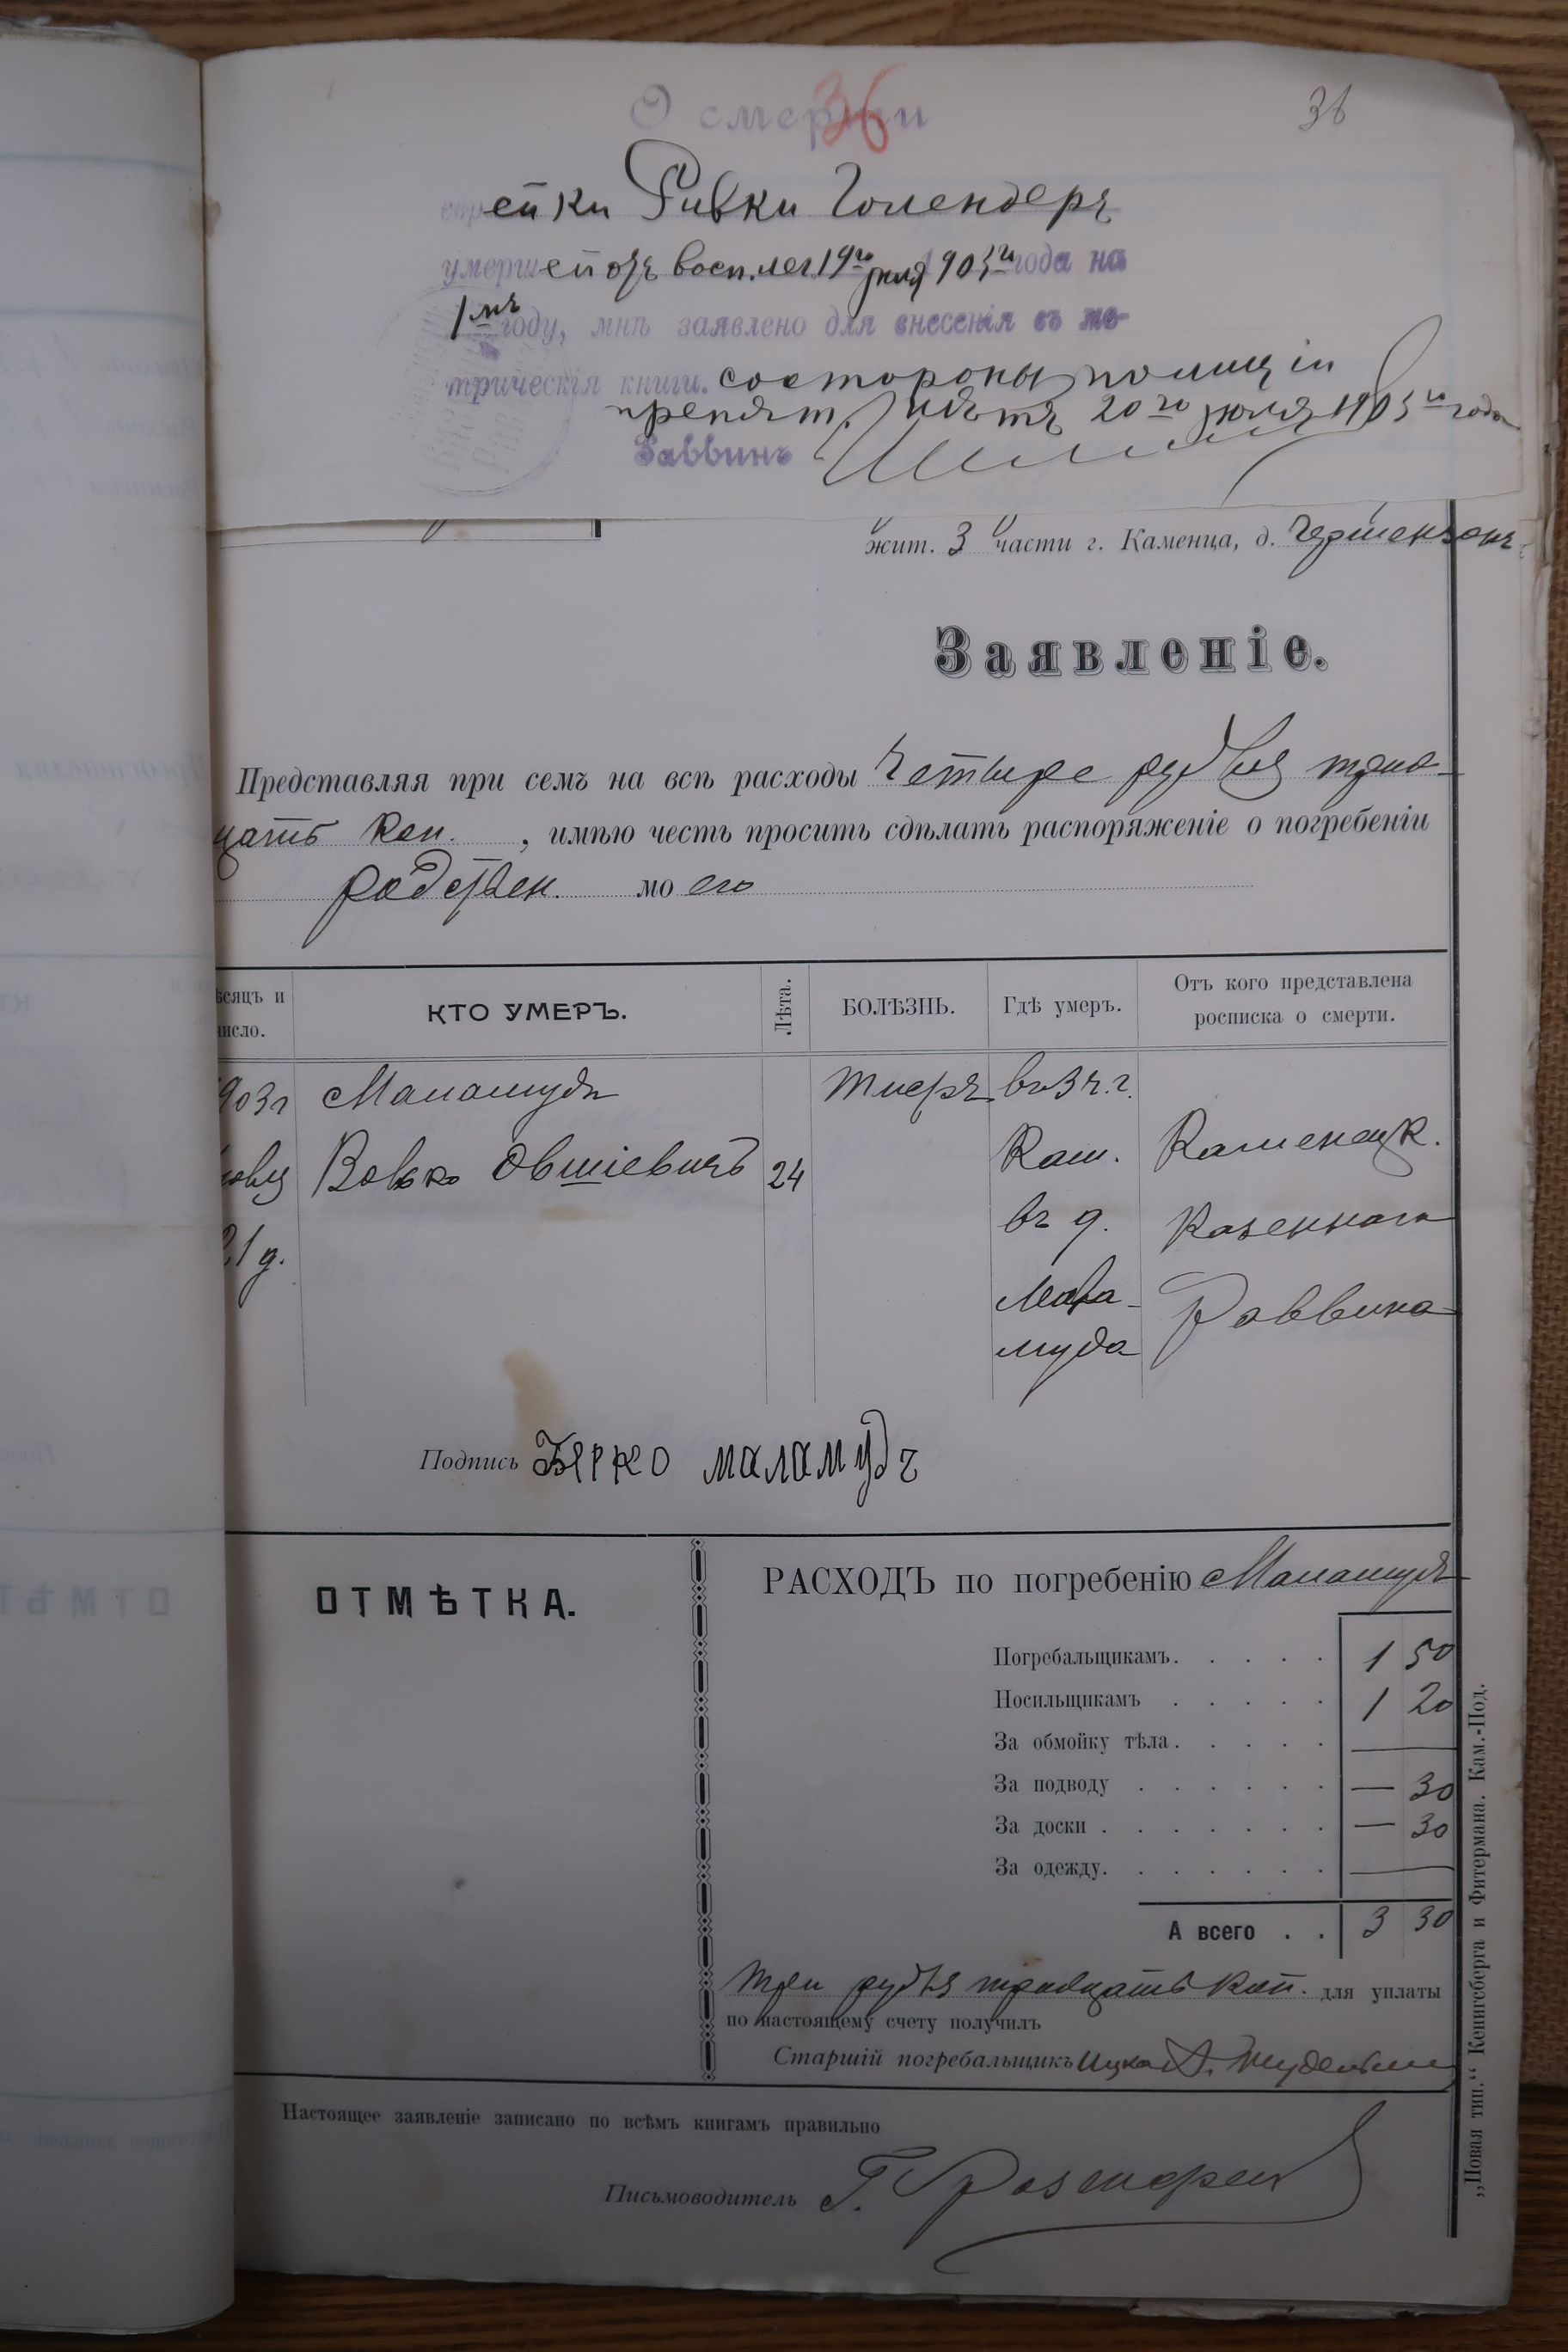 О смерти
36
36
еврейки Ривки Голендеръ
умершей отъ восп. лег. 19го июля 1903го года на
1мъ году, мнѣ заявлено для внесенія въ ме-
трическія книги. со стороны полиціи
препят. нѣтъ 20го июля 1903го года
Раввинъ
жит. 3 части г. Каменца, д. Гершензонъ
Заявленіе.
Представляя при семъ на всѣ расходы Четыре рубля трид-
цать коп. , имѣю честь просить сдѣлать распоряженіе о погребеніи
родствен. моего
ѣсяцъ и число.
КТО УМЕРЪ.
Лѣта.
БОЛѢЗНЬ.
Гдѣ умеръ.
Отъ кого представлена росписка о смерти.
903г Маламудъ въ 3 ч. г.
Волько Овшіевичъ 24 Кам. Каменецк.
21 д. въ д. Казеннаго
Мала- Раввина
муда
Подпись Берко маламудъ
ОТМѢТКА.
РАСХОДЪ по погребенію Маламудъ
Погребальщикамъ. 1 50
Носильщикамъ 1 20
За обмойку тѣла. —
За подводу — 30
За доски — 30
За одежду. —
А всего 3 30
Три рубля тридцать коп. для уплаты
по настоящему счету получилъ
Старшій погребальщикъ Ицко
Настоящее заявленіе записано по всѣмъ книгамъ правильно
Письмоводитель Г.
„Новая тип.“ Кенигсберга и Фитермана. Кам.-Под.